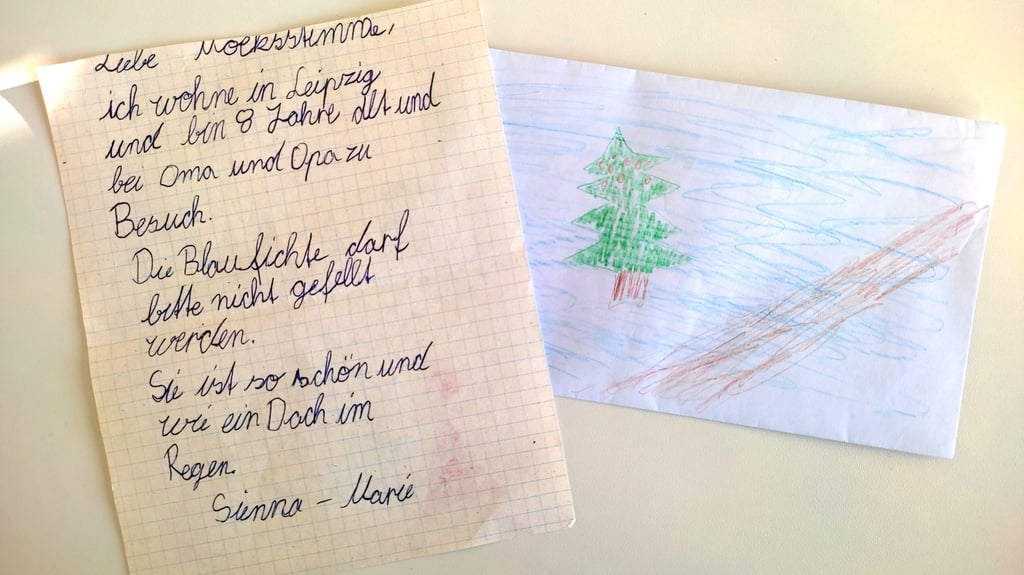 Liebe Volksstimme,
ich wohne in Leipzig
und bin 8 Jahre alt und
bei Oma und Opa zu
Besuch.
Die Blaufichte darf
bitte nicht gefellt
werden.
Sie ist so schön und
wie ein Dach im
Regen.
Sienna - Marie